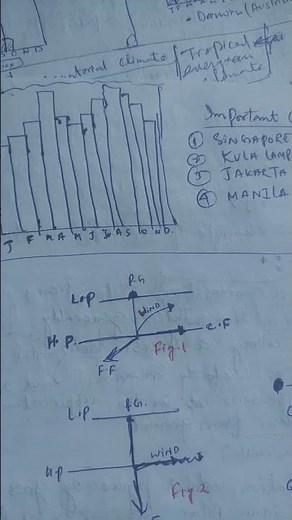 • Darwin (Austra
Tropical
evergreen
climate
Important (
① SINGAPORE
② KULA LAMP
③ JAKARTA
④ MANILA
J F M A M J J A S O N D.
P.G.
L.P
WIND
H.P.
C.F
F.F
Fig.1
L.P P.G.
WIND
H.P
Fig.2